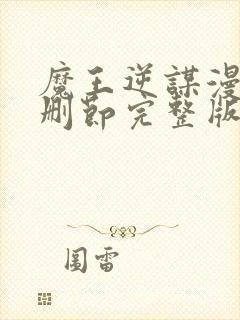 魔王逆謀漫
刪節完整版
圖雷